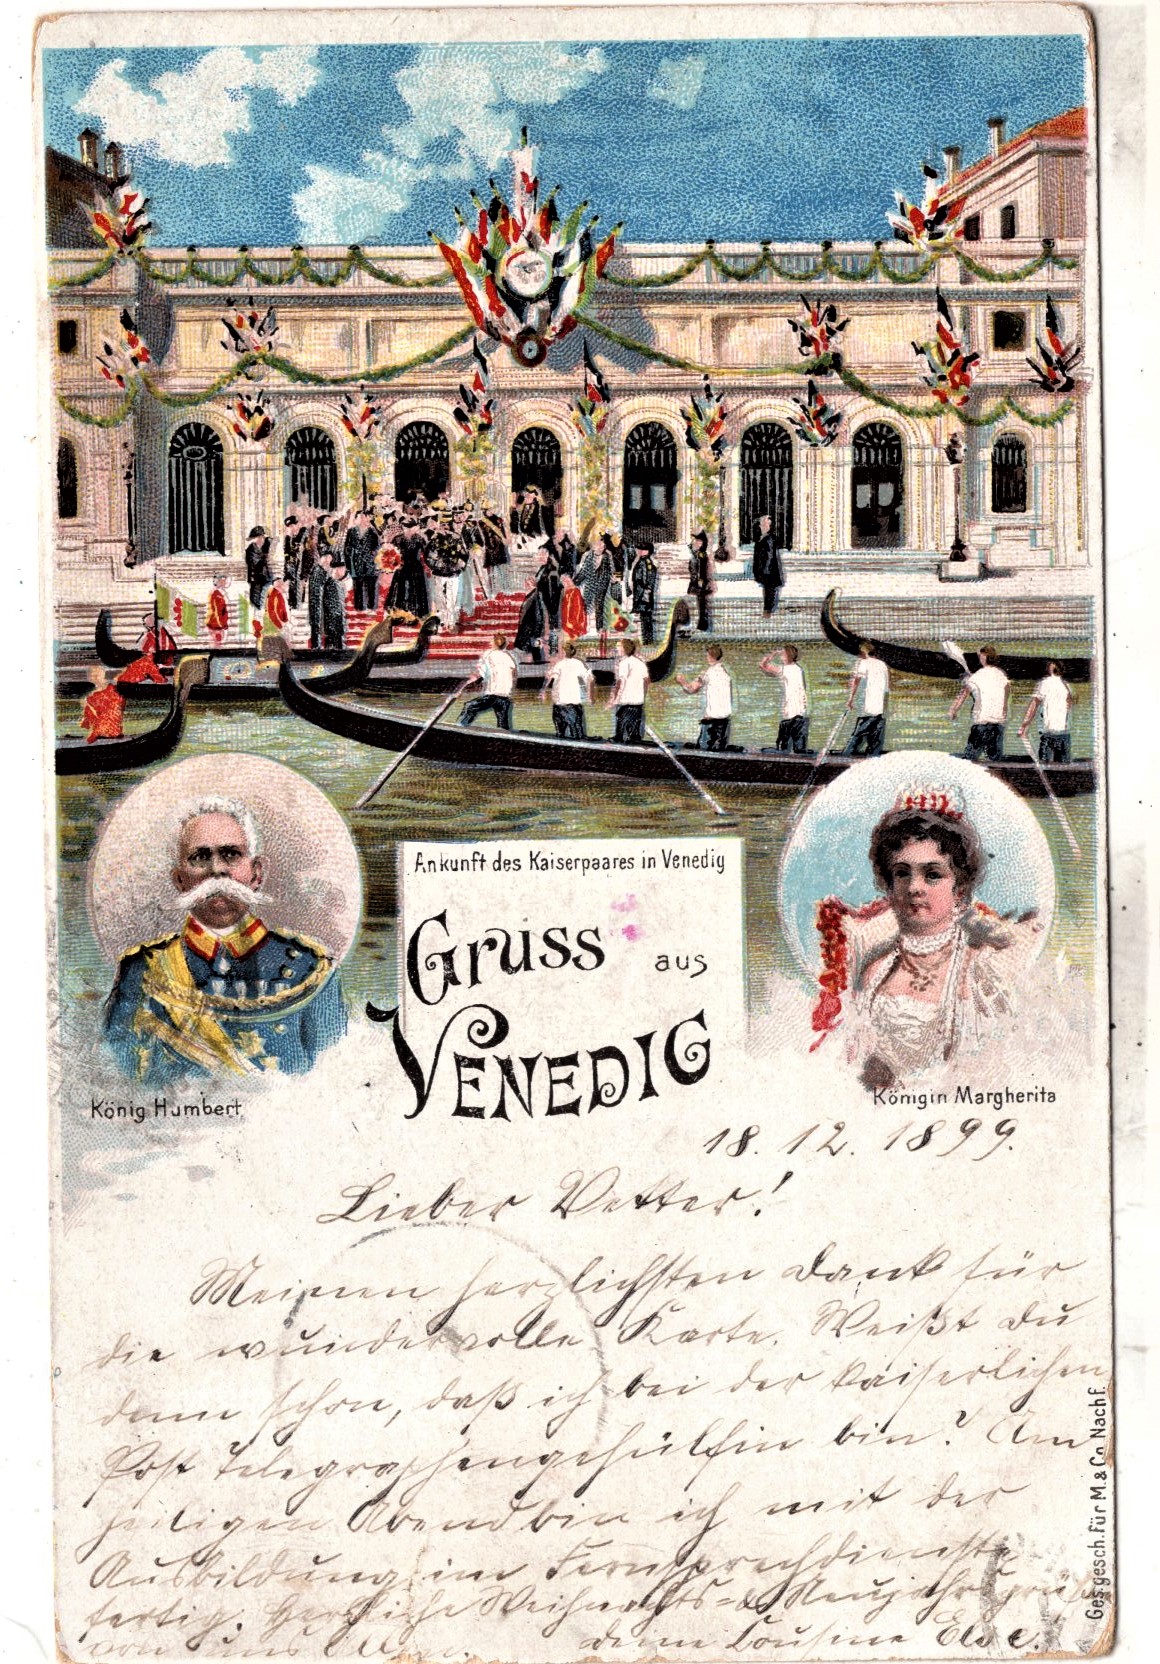 Ankunft des Kaiserpaares in Venedig
Gruss aus
VENEDIG
König Humbert
Königin Margherita
18. 12. 1899.
Lieber Vetter!
Meinen herzlichsten Dank für
die wundervolle Karte. Weißt du
denn schon, daß ich bei der kaiserlichen
Post Telegraphengehülfin bin? Am
heiligen Abend bin ich mit der
Ausbildung im Fernsprechdienste
fertig. Herzliche Weihnachts- & Neujahrsgrüße
von uns Allen. deine Cousine Else.
Ges. gesch. für M. & Co. Nachf.